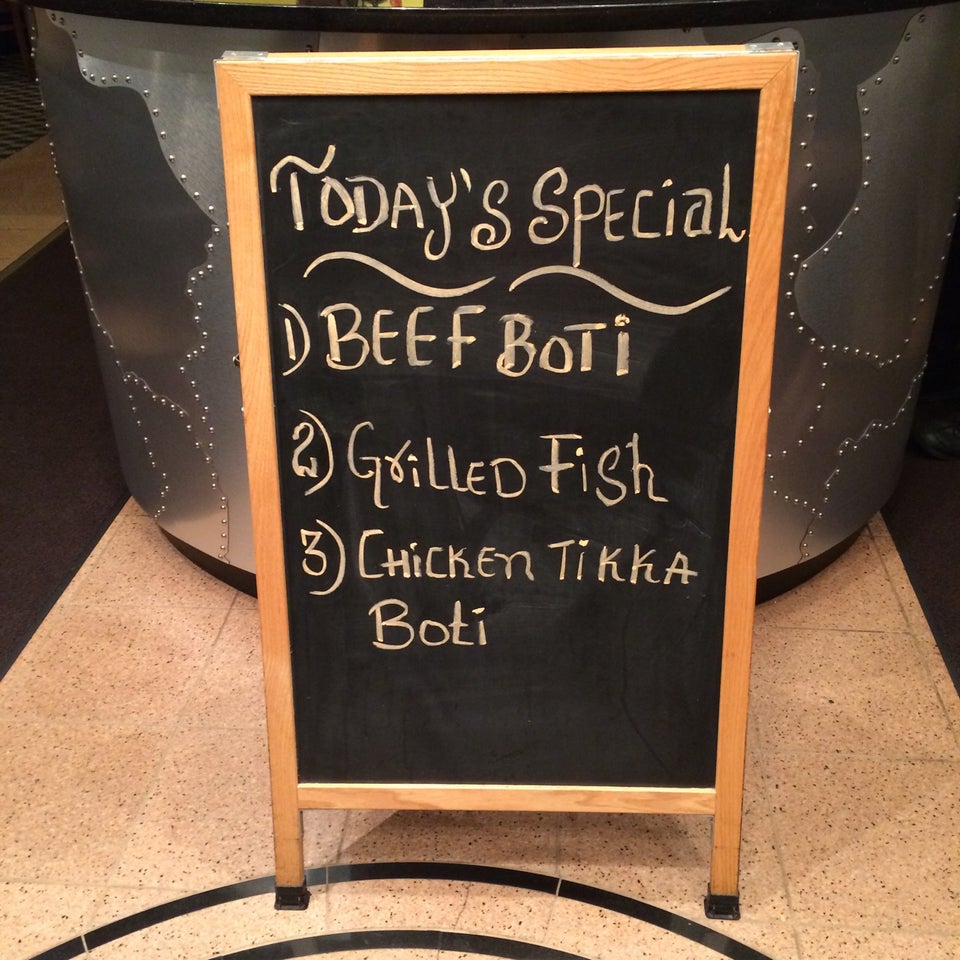 TODAY'S SPECIAL
1) BEEF BOTi
2) GRILLED Fish
3) CHICKEN TIKKA
Boti